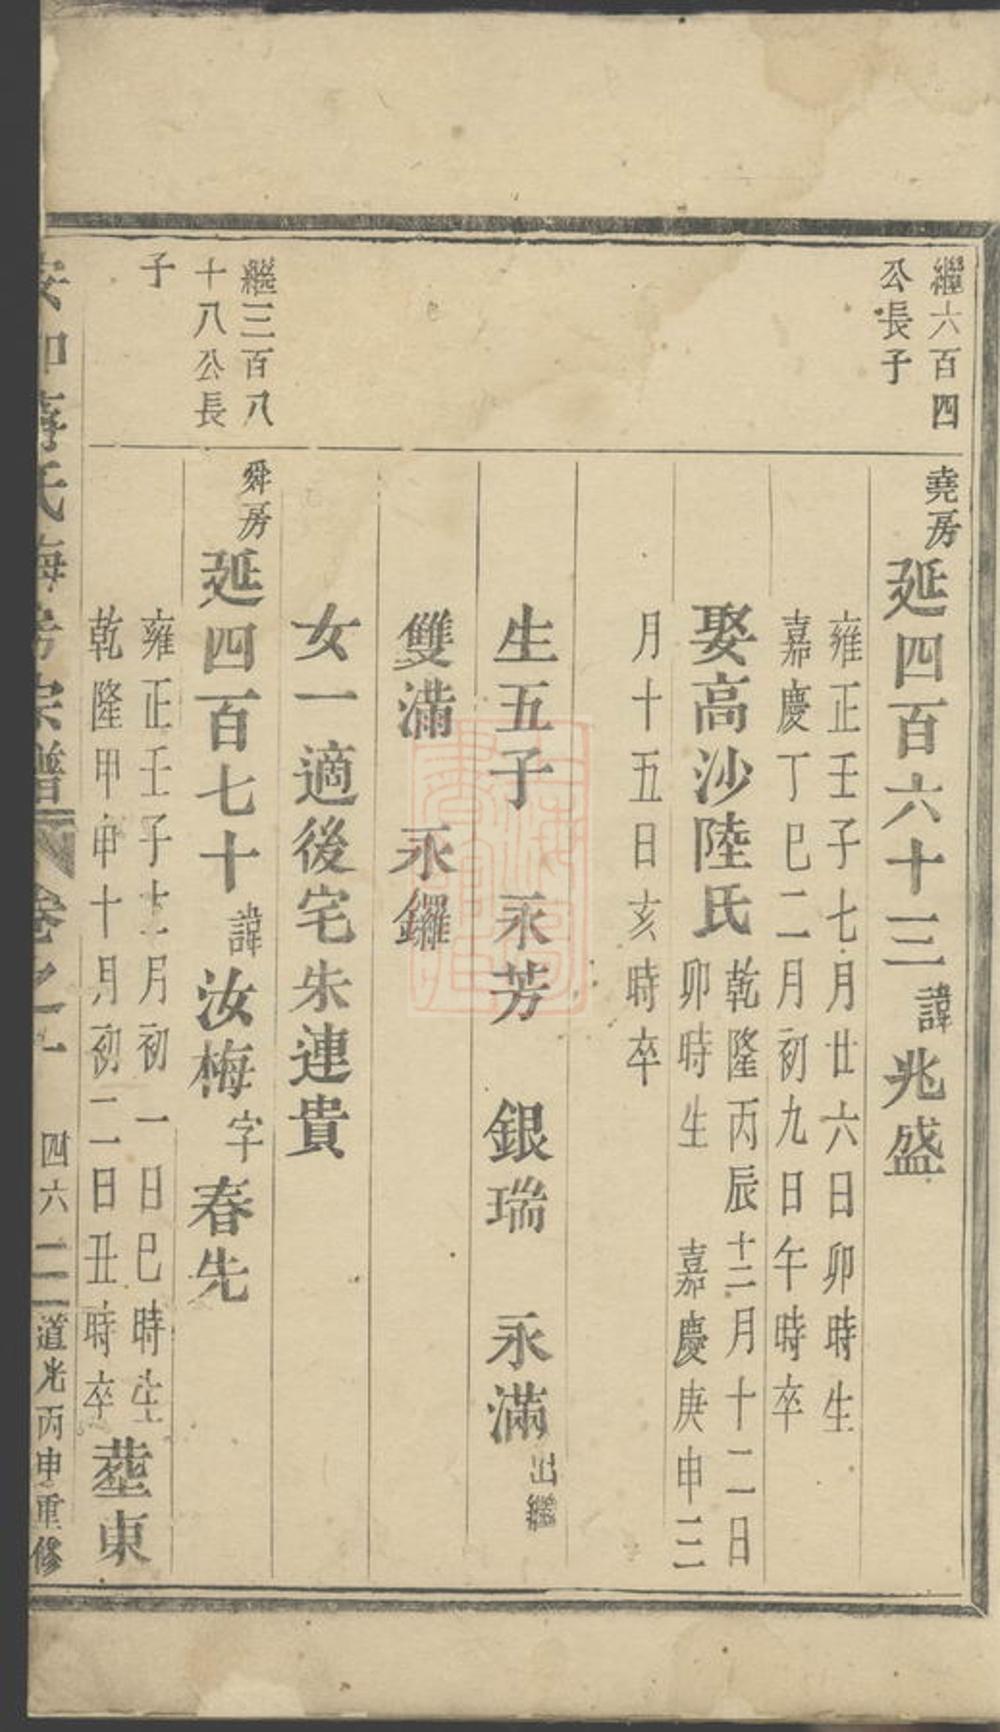 繼六百四
公長子
堯房
延四百六十三諱兆盛
雍正壬子七月廿六日卯時生
嘉慶丁巳二月初九日午時卒
娶高沙陸氏
乾隆丙辰十二月十二日
卯時生 嘉慶庚申三
月十五日亥時卒
生五子 永芳 銀瑞 永滿出繼
雙滿 永鑼
女一適後宅朱連貴
繼三百八
十八公長
子
舜房
延四百七十諱汝梅字春先
雍正壬子十二月初一日巳時生
乾隆甲申十月初二日丑時卒
塟東
氏梅房宗譜 卷之一 四六二 道光丙申重修